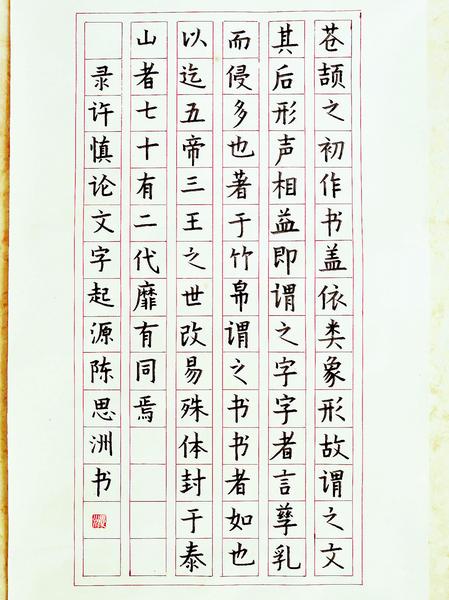 苍颉之初作书盖依类象形故谓之文
其后形声相益即谓之字字者言孳乳
而侵多也著于竹帛谓之书书者如也
以迄五帝三王之世改易殊体封于泰
山者七十有二代靡有同焉
录许慎论文字起源陈思洲书